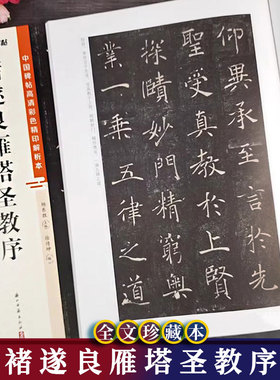 中国碑帖高清彩色精印解析本
遂良雁塔圣教序
仰異承至言於先
聖受真教於上賢
探賾妙門精窮奧
業一乘五律之道
全文珍藏本
褚遂良雁塔圣教序